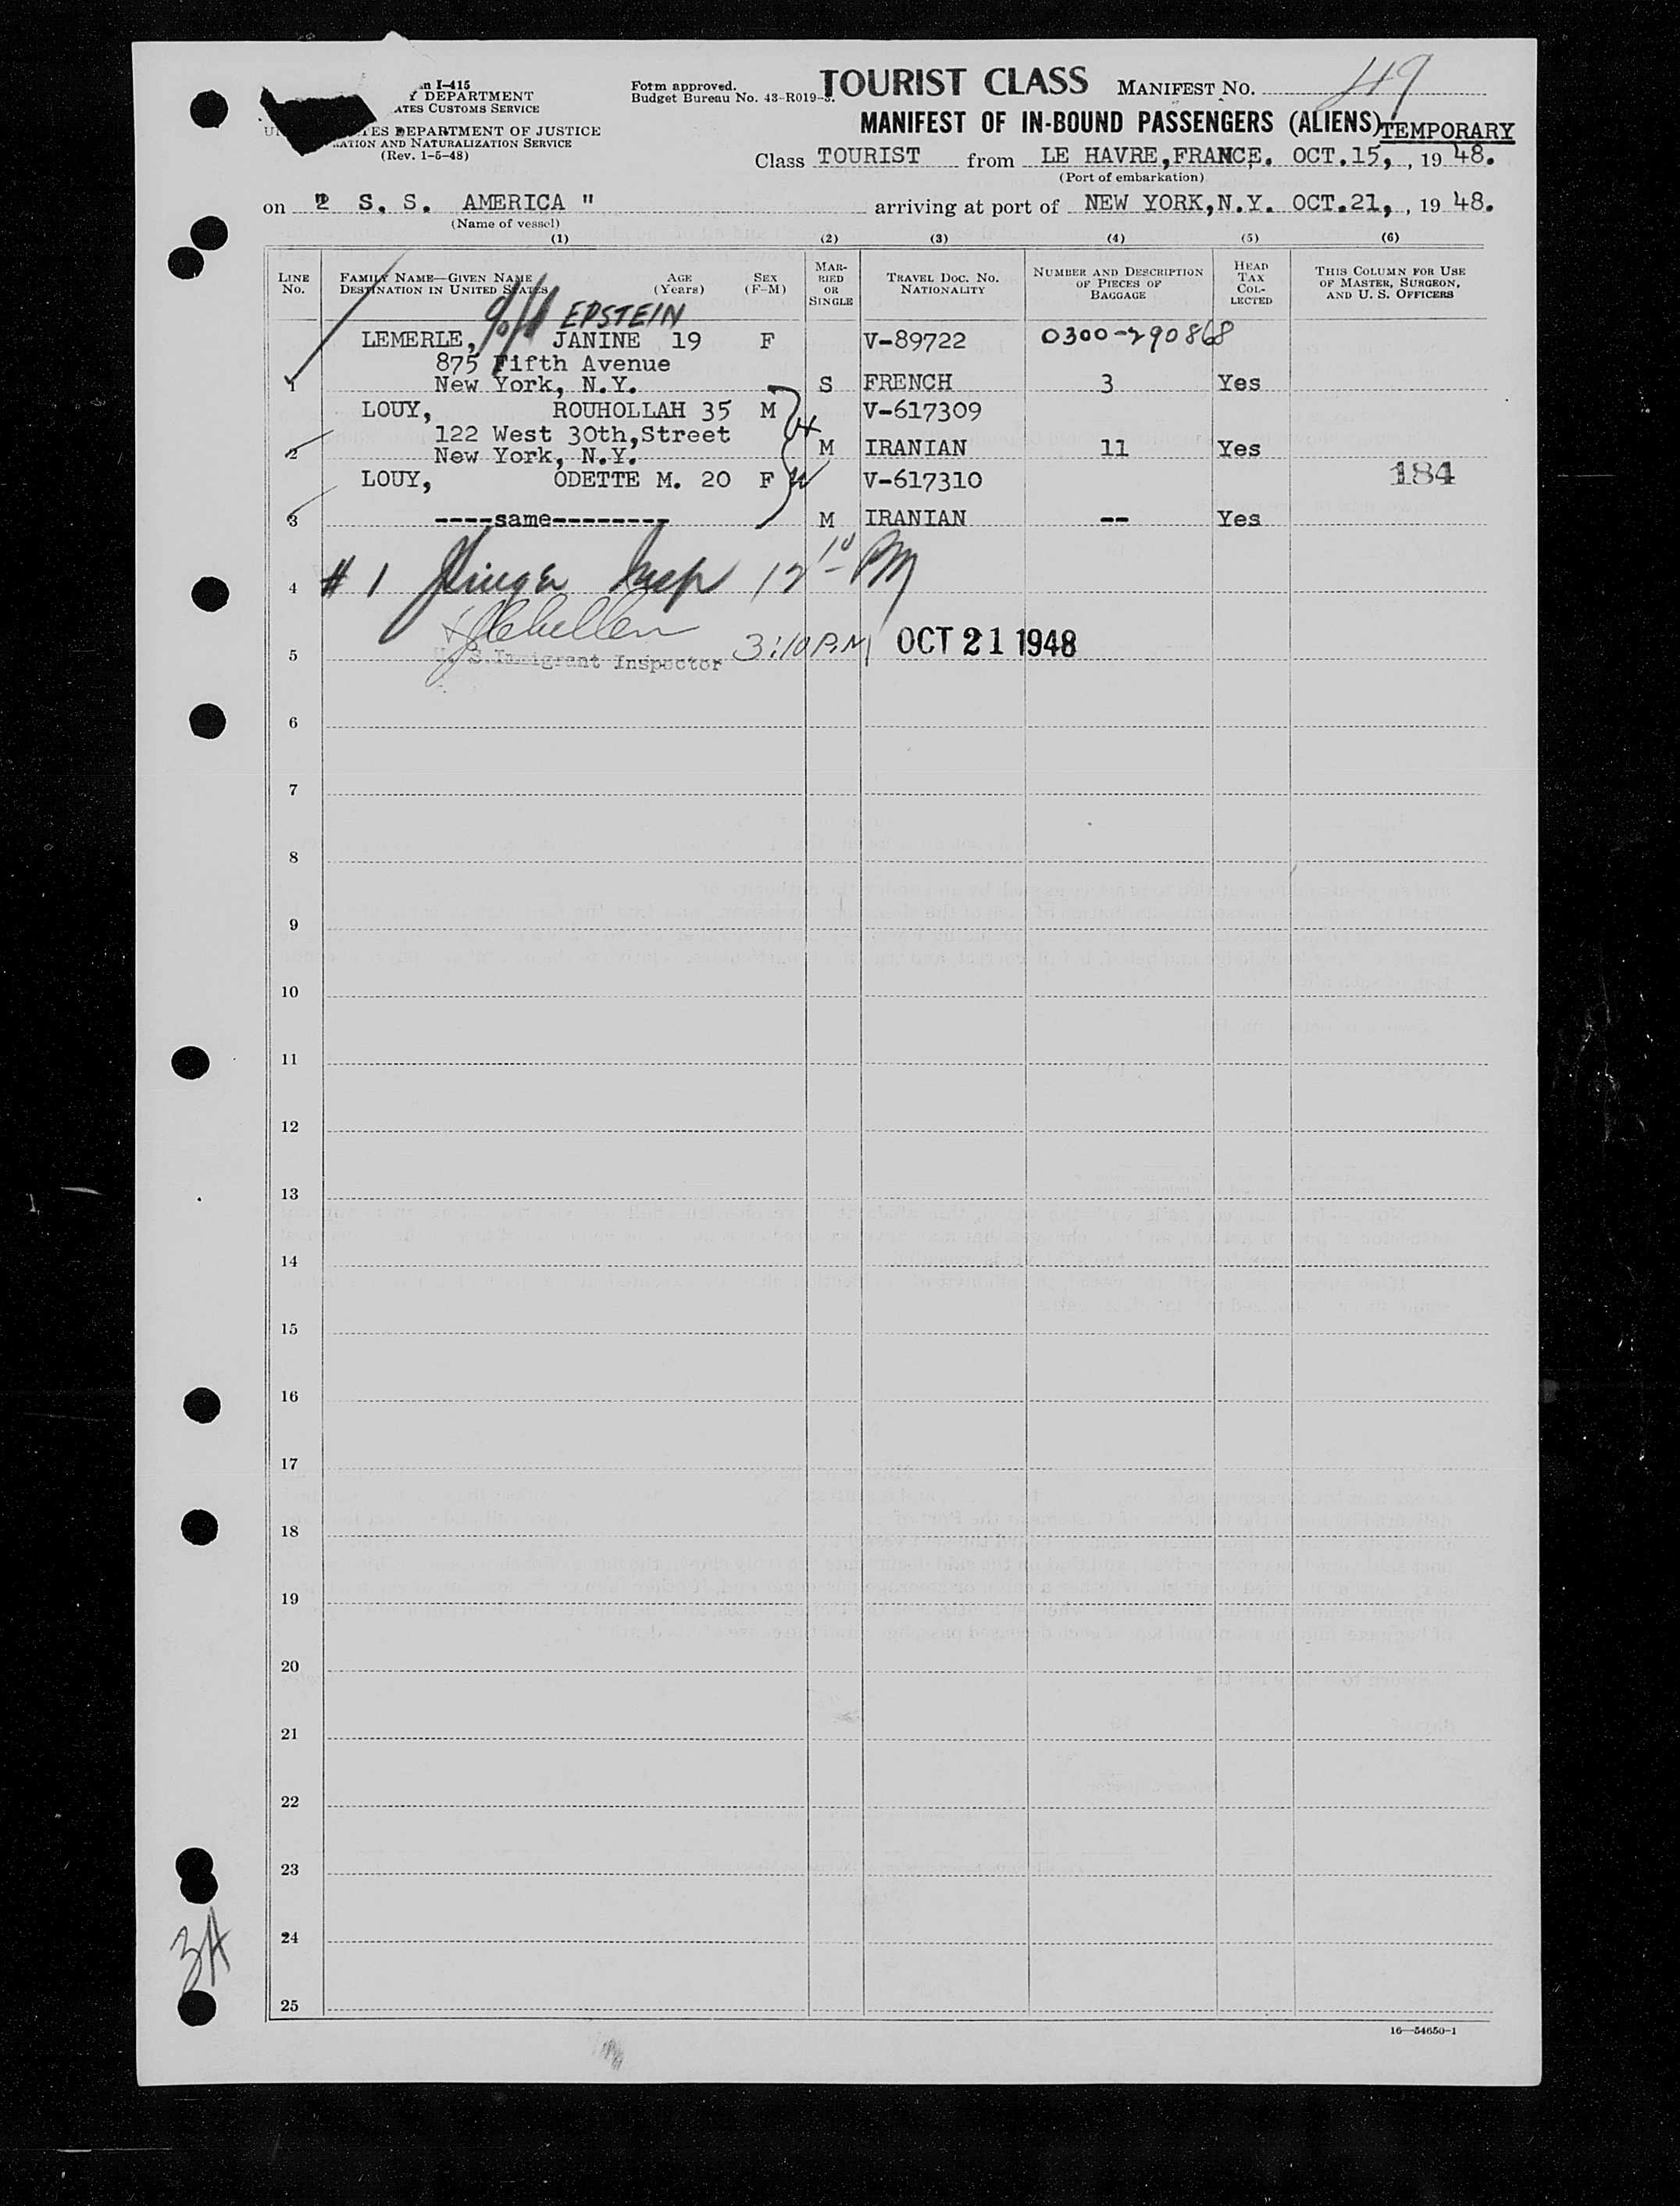 I-415
DEPARTMENT
CUSTOMS SERVICE
DEPARTMENT OF JUSTICE
AND NATURALIZATION SERVICE
(Rev. 1-5-48)
Form approved.
Budget Bureau No. 43-R019-3.
TOURIST CLASS MANIFEST No. 49
MANIFEST OF IN-BOUND PASSENGERS (ALIENS) TEMPORARY
Class TOURIST from LE HAVRE, FRANCE. OCT.15, , 19 48.
(Port of embarkation)
on " S. S. AMERICA " arriving at port of NEW YORK, N.Y. OCT.21, , 19 48.
(Name of vessel)
(1) (2) (3) (4) (5) (6)
LINE No. FAMILY NAME—GIVEN NAME DESTINATION IN UNITED STATES AGE (Years) SEX (F-M) MARRIED OR SINGLE TRAVEL DOC. No. NATIONALITY NUMBER AND DESCRIPTION OF PIECES OF BAGGAGE HEAD TAX COLLECTED THIS COLUMN FOR USE OF MASTER, SURGEON, AND U. S. OFFICERS
c/o EPSTEIN
LEMERLE, JANINE 19 F V-89722 0300-290868
875 Fifth Avenue
1 New York, N.Y. S FRENCH 3 Yes
LOUY, ROUHOLLAH 35 M V-617309
122 West 30th, Street
2 New York, N.Y. M IRANIAN 11 Yes
LOUY, ODETTE M. 20 F V-617310 184
3 ----same-------- M IRANIAN -- Yes
4 # 1 Insp 12 10 PM
5 U. S. Immigrant Inspector 3:10 P.M OCT 21 1948
6
7
8
9
10
11
12
13
14
15
16
17
18
19
20
21
22
23
24
25
3A
16—54650-1